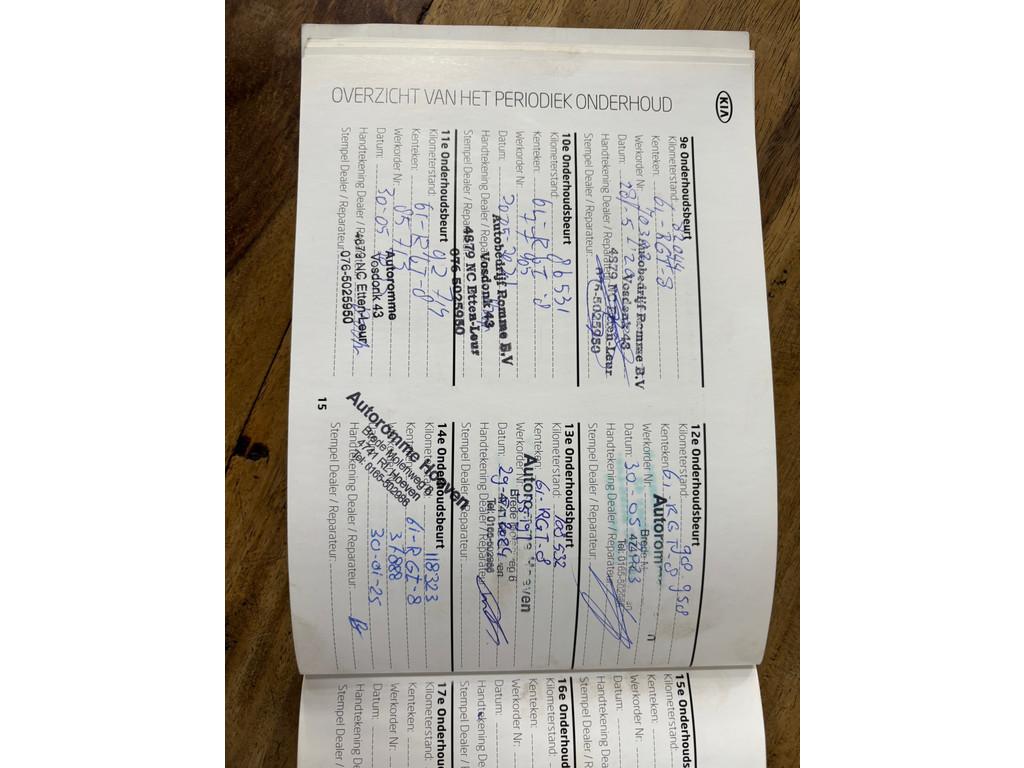 OVERZICHT VAN HET PERIODIEK ONDERHOUD
KIA
9e Onderhoudsbeurt
Kilometerstand: 82044
Kenteken: 61-RGT-8
Werkorder Nr:
Datum: 28-5
Handtekening Dealer / Reparateur:
Stempel Dealer / Reparateur:
Autobedrijf Romme B.V
Vosdonk 43
4879 NC Etten-Leur
076-5025950
10e Onderhoudsbeurt
Kilometerstand: 86531
Kenteken:
Werkorder Nr:
Datum:
Handtekening Dealer / Reparateur:
Stempel Dealer / Reparateur:
Autobedrijf Romme B.V
Vosdonk 43
4879 NC Etten-Leur
076-5025950
11e Onderhoudsbeurt
Kilometerstand: 92719
Kenteken: 61-RGT-8
Werkorder Nr:
Datum: 30-05
Handtekening Dealer / Reparateur:
Stempel Dealer / Reparateur:
Autoromme
Vosdonk 43
4879 NC Etten-Leur
076-5025950
15
12e Onderhoudsbeurt
Kilometerstand: 98958
Kenteken: 61 RGT 8
Werkorder Nr:
Datum: 30-05
Handtekening Dealer / Reparateur:
Stempel Dealer / Reparateur:
Autoromm
Tel. 0165-502986
13e Onderhoudsbeurt
Kilometerstand: 108532
Kenteken: 61-RGT-8
Werkorder Nr:
Datum: 29
Handtekening Dealer / Reparateur:
Stempel Dealer / Reparateur:
Tel. 0165-502986
14e Onderhoudsbeurt
Kilometerstand: 118323
Kenteken: 61-RGT-8
37088
30-01-25
Handtekening Dealer / Reparateur:
Stempel Dealer / Reparateur:
Autoromme Hoeven
Brede Molenweg 6
4741 RL Hoeven
Tel. 0165-502986
15e Onderhoudsbeurt
Kilometerstand:
Kenteken:
Werkorder Nr:
Datum:
Handtekening D
Stempel Dealer /
16e Onderhoudsb
Kilometerstand:
Kenteken:
Werkorder Nr:
Datum:
Handtekening D
Stempel Dealer
17e Onderhou
Kilometerstand:
Kenteken:
Werkorder Nr:
Datum:
Handtekening De
Stempel Dealer /